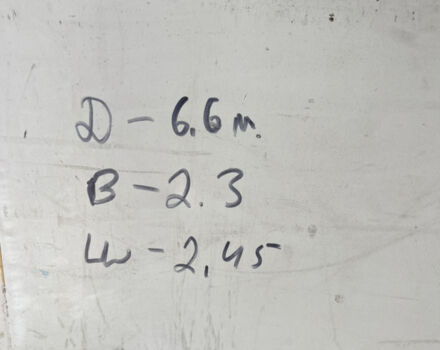 Д - 6.6 м.
В - 2.3
Ш - 2,45